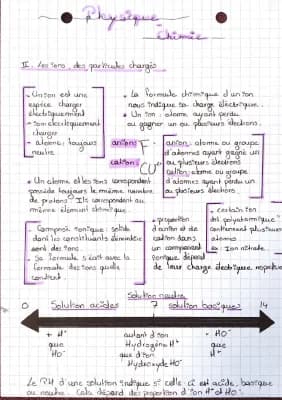 Physique
chimie
II. Les ions, des particules chargés
• Un ion est une
espèce charger
électriquement
• ion électriquement
charger
• atome : toujours
neutre
• La formule chimique d'un ion
nous indique sa charge électrique.
• Un ion : atome ayant perdu
ou gagner un ou plusieurs électrons.
anions F-
cation Cu
anion : atome ou groupe
d'atomes ayant gagné un
ou plusieurs électrons
cation : atome ou groupe
d'atomes ayant perdu un
ou plusieurs électrons
• Un atome et les ions correspondant
possède toujours le même nombre
de protons. Ils correspondent au
même élément chimique.
• Composé ionique : solide
dont les constituants élémentaire
sont des ions.
• Sa formule s'écrit avec la
formule des ions qu'elle
contient.
• proportion
d'anion et de
cation dans
un composant
ionique dépend
de leur charge électrique
• certain ion
dit polyatomique
contiennent plusieurs
atomes
ex : Ion nitrate
Solution neutre
0 Solution acides 7 solution basiques 14
+ H+
que
HO-
autant d'ion
Hydrogène H+
que d'ion
Hydroxyde HO-
HO-
que
H+
Le PH d'une solution indique si celle ci est acide, basique
ou neutre. Cela dépend des proportion d'ion H+ et HO-.